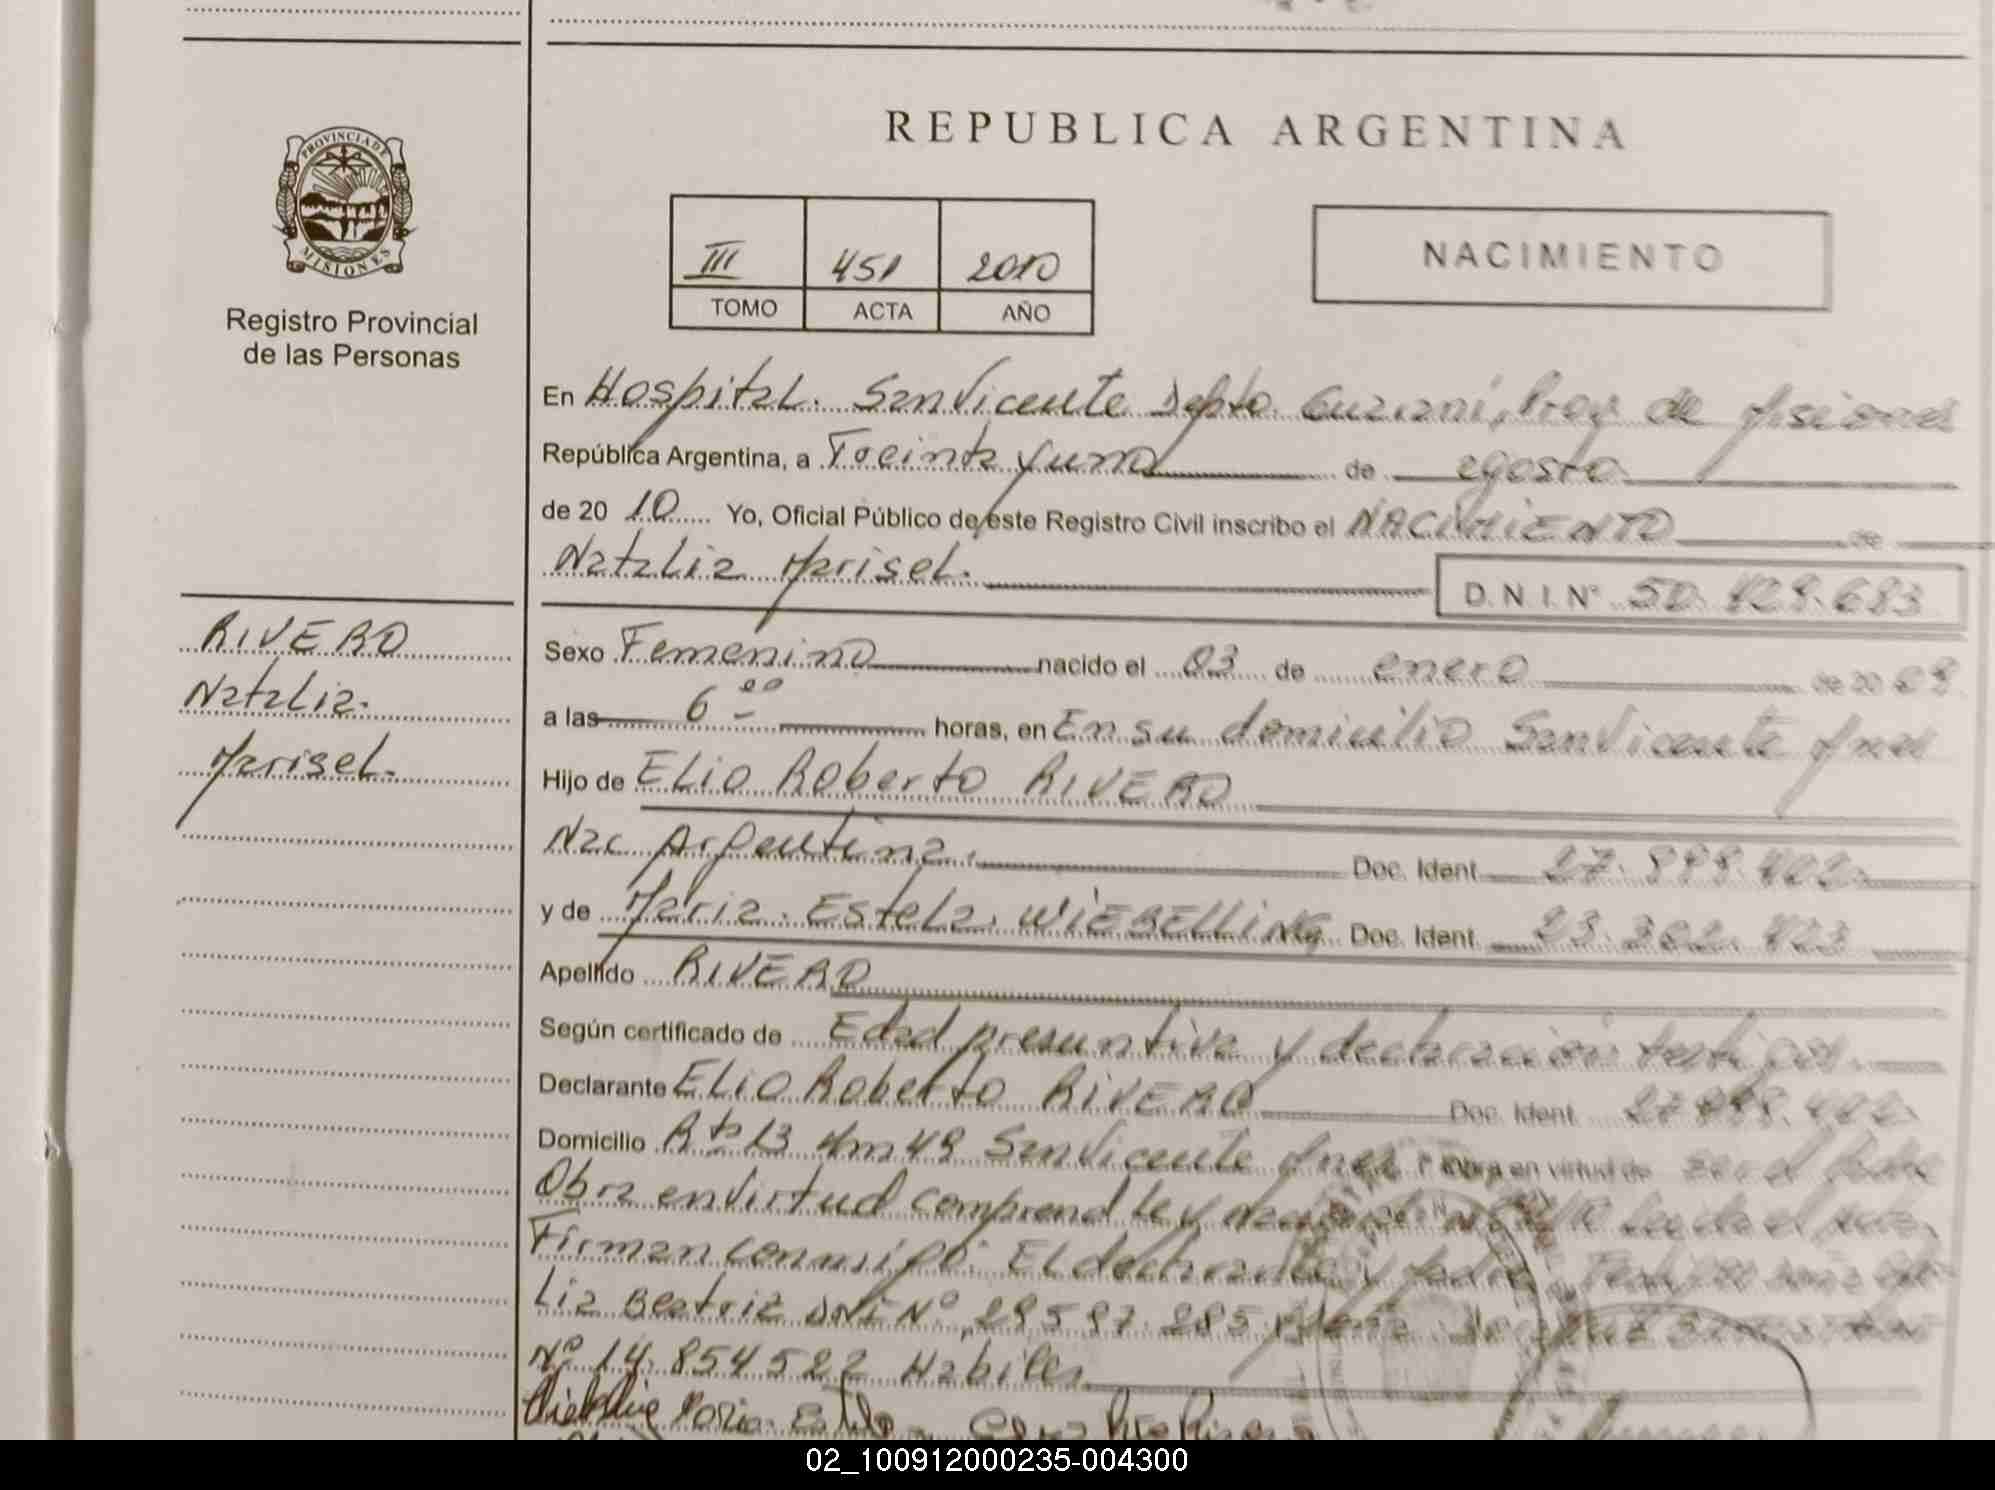 REPUBLICA ARGENTINA
PROVINCIA DE
MISIONES
Registro Provincial
de las Personas
III 451 2010
TOMO ACTA AÑO
NACIMIENTO
En Hospital. San Vicente Depto. Guaraní, Prov de Misiones
República Argentina, a Treinta y uno de agosto
de 20 10 Yo, Oficial Público de este Registro Civil inscribo el NACIMIENTO de
Natalia Marisel. D.N.I. Nº
RIVERO
Natalia.
Marisel.
Sexo Femenino nacido el 03 de enero de 20
a las 6 00 horas, en En su domicilio San Vicente Mnes
Hijo de Elio Roberto RIVERO
Nac Argentina. Doc. Ident.
y de Maria. Estela. WIEBELLING Doc. Ident. 23.302.423
Apellido RIVERO
Según certificado de Edad presuntiva y declaración testigos.
Declarante Elio Roberto RIVERO Doc. Ident.
Domicilio Rta 13 Km 49 San Vicente Mnes Obra en virtud de ser el padre
Obra en virtud comprend ley nacional Leída el acta
Firman conmigo: El declarante y padre Testigos
Lia Beatriz DNI Nº
Nº 14.854522 Habiles
02_100912000235-004300